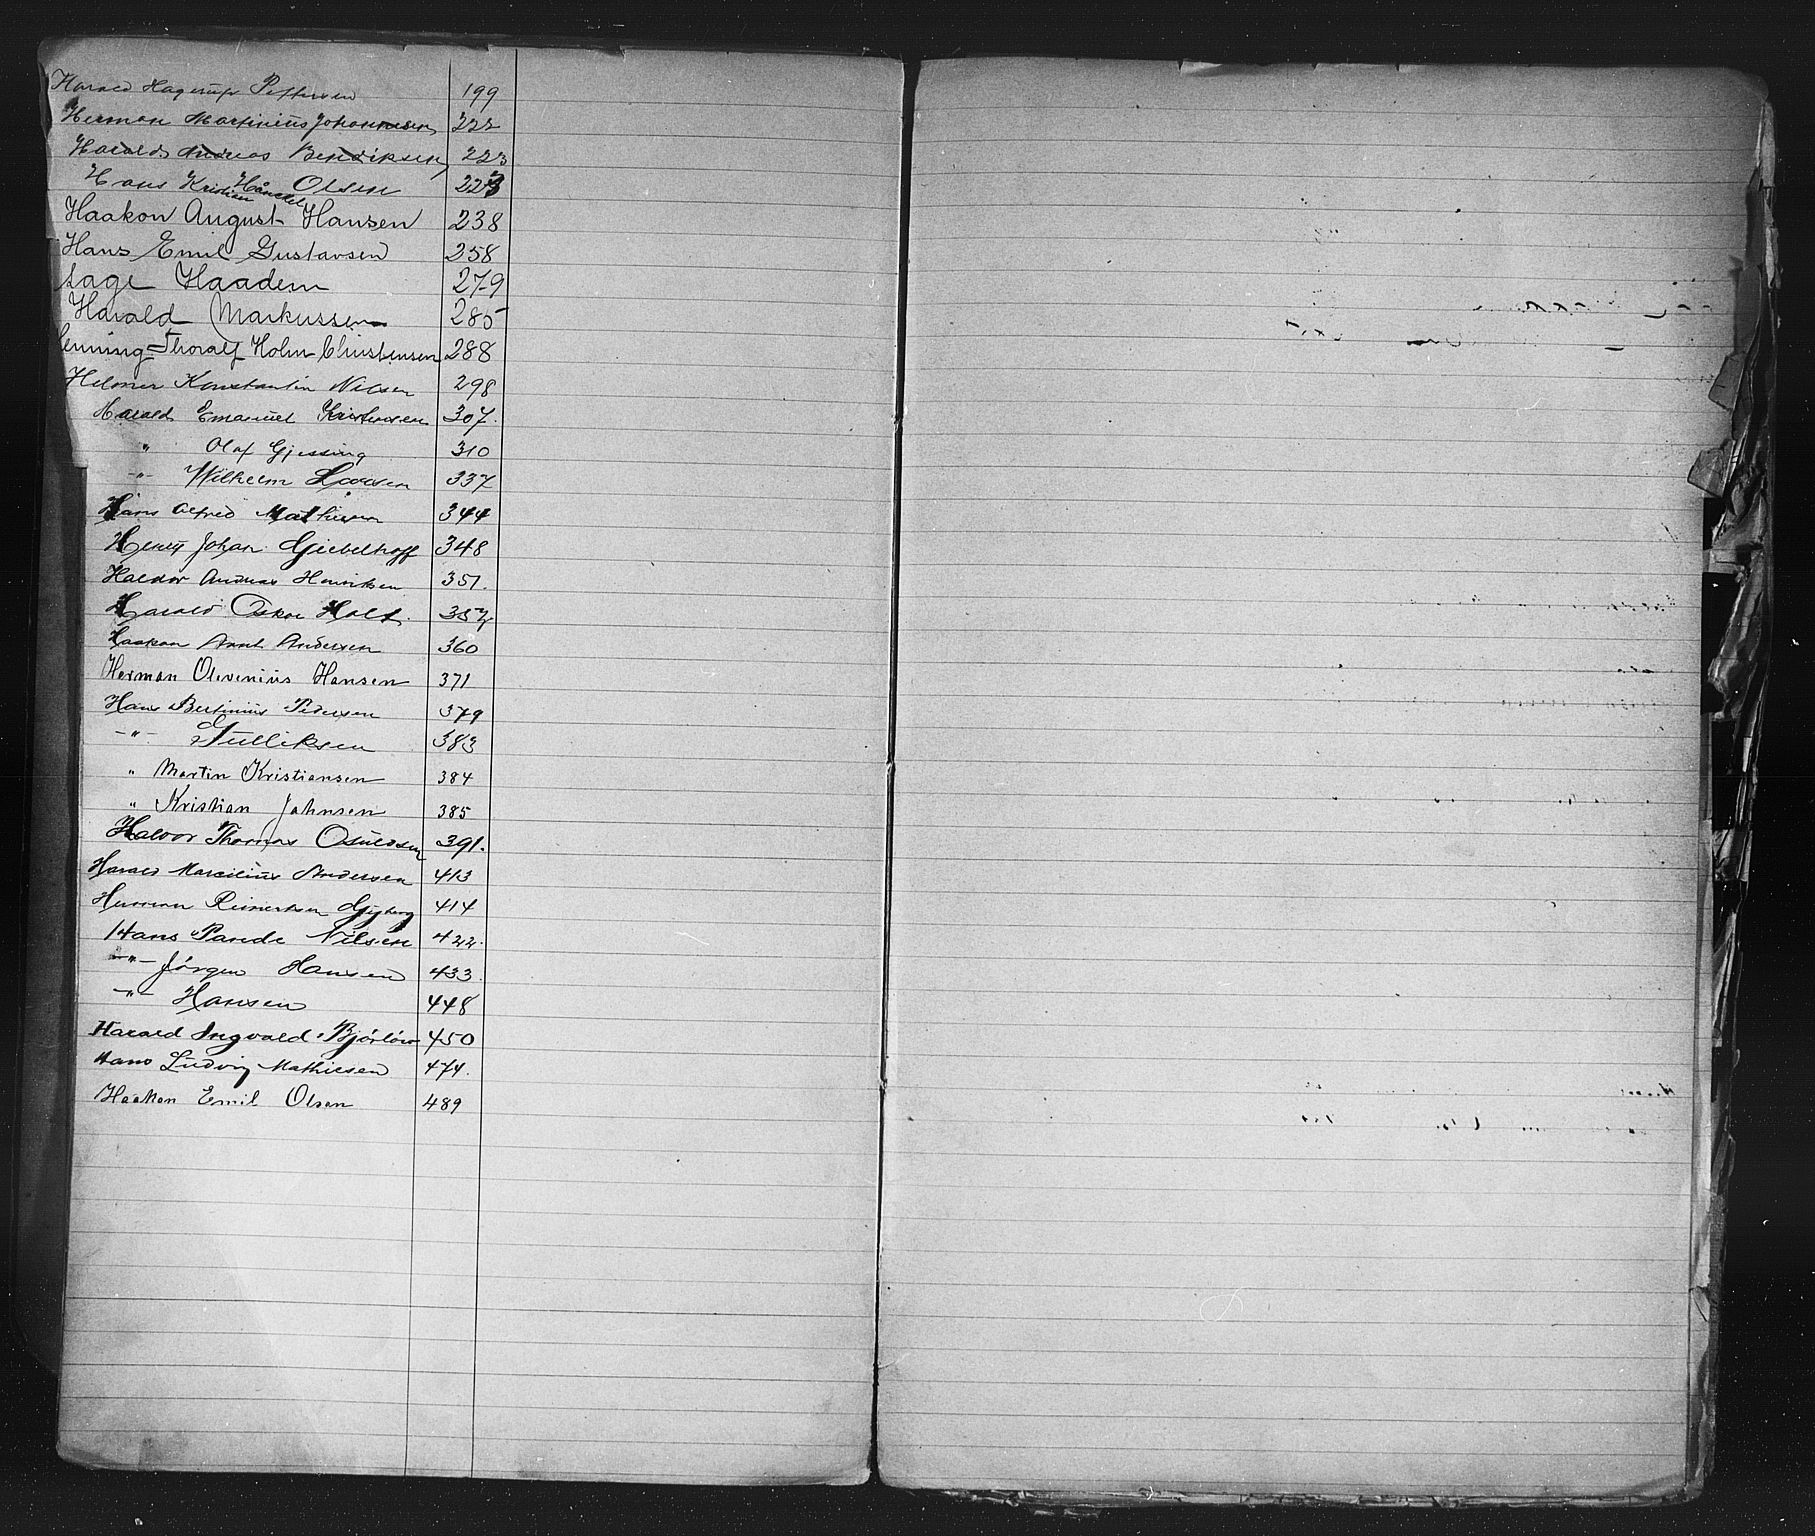 Harald Hagerup Pettersen 199
Herman Martinius Johannesen 222
Harald Andreas Bendiksen 223
Hans Kristian Olsen 223
Haakon August Hansen 238
Hans Emil Gustavsen 258
Haadem 279
Harald Markussen 285
enning Thoralf Holm Christensen 288
Helmer Konstantin Nilsen 298
Harald Emanuel Kristensen 307.
" Olaf Gjessing 310
-"- Wilhelm Larsen 337
Hans Alfred Mathisen 344
Henry Johan Giebelhoff 348
Haldor Andreas Henriksen 351.
Harald Oskar Holt. 357
Haakon Arnt Andersen 360
Herman Olevenius Hansen 371
Hans Bertinius Pedersen 379
-"- Gulliksen 383
" Martin Kristiansen 384
" Kristian Johnsen 385
Halvor Thomas Osuldsen 391.
Harald Marcilius Andersen 413
Herman Reinertsen 414
Hans Pande Nilsen 422.
-"- Jörgen Hansen 433.
-"- Hansen 448
Harald Ingvald 450
Hans Ludvig Mathiesen 474.
Haakon Emil Olsen 489